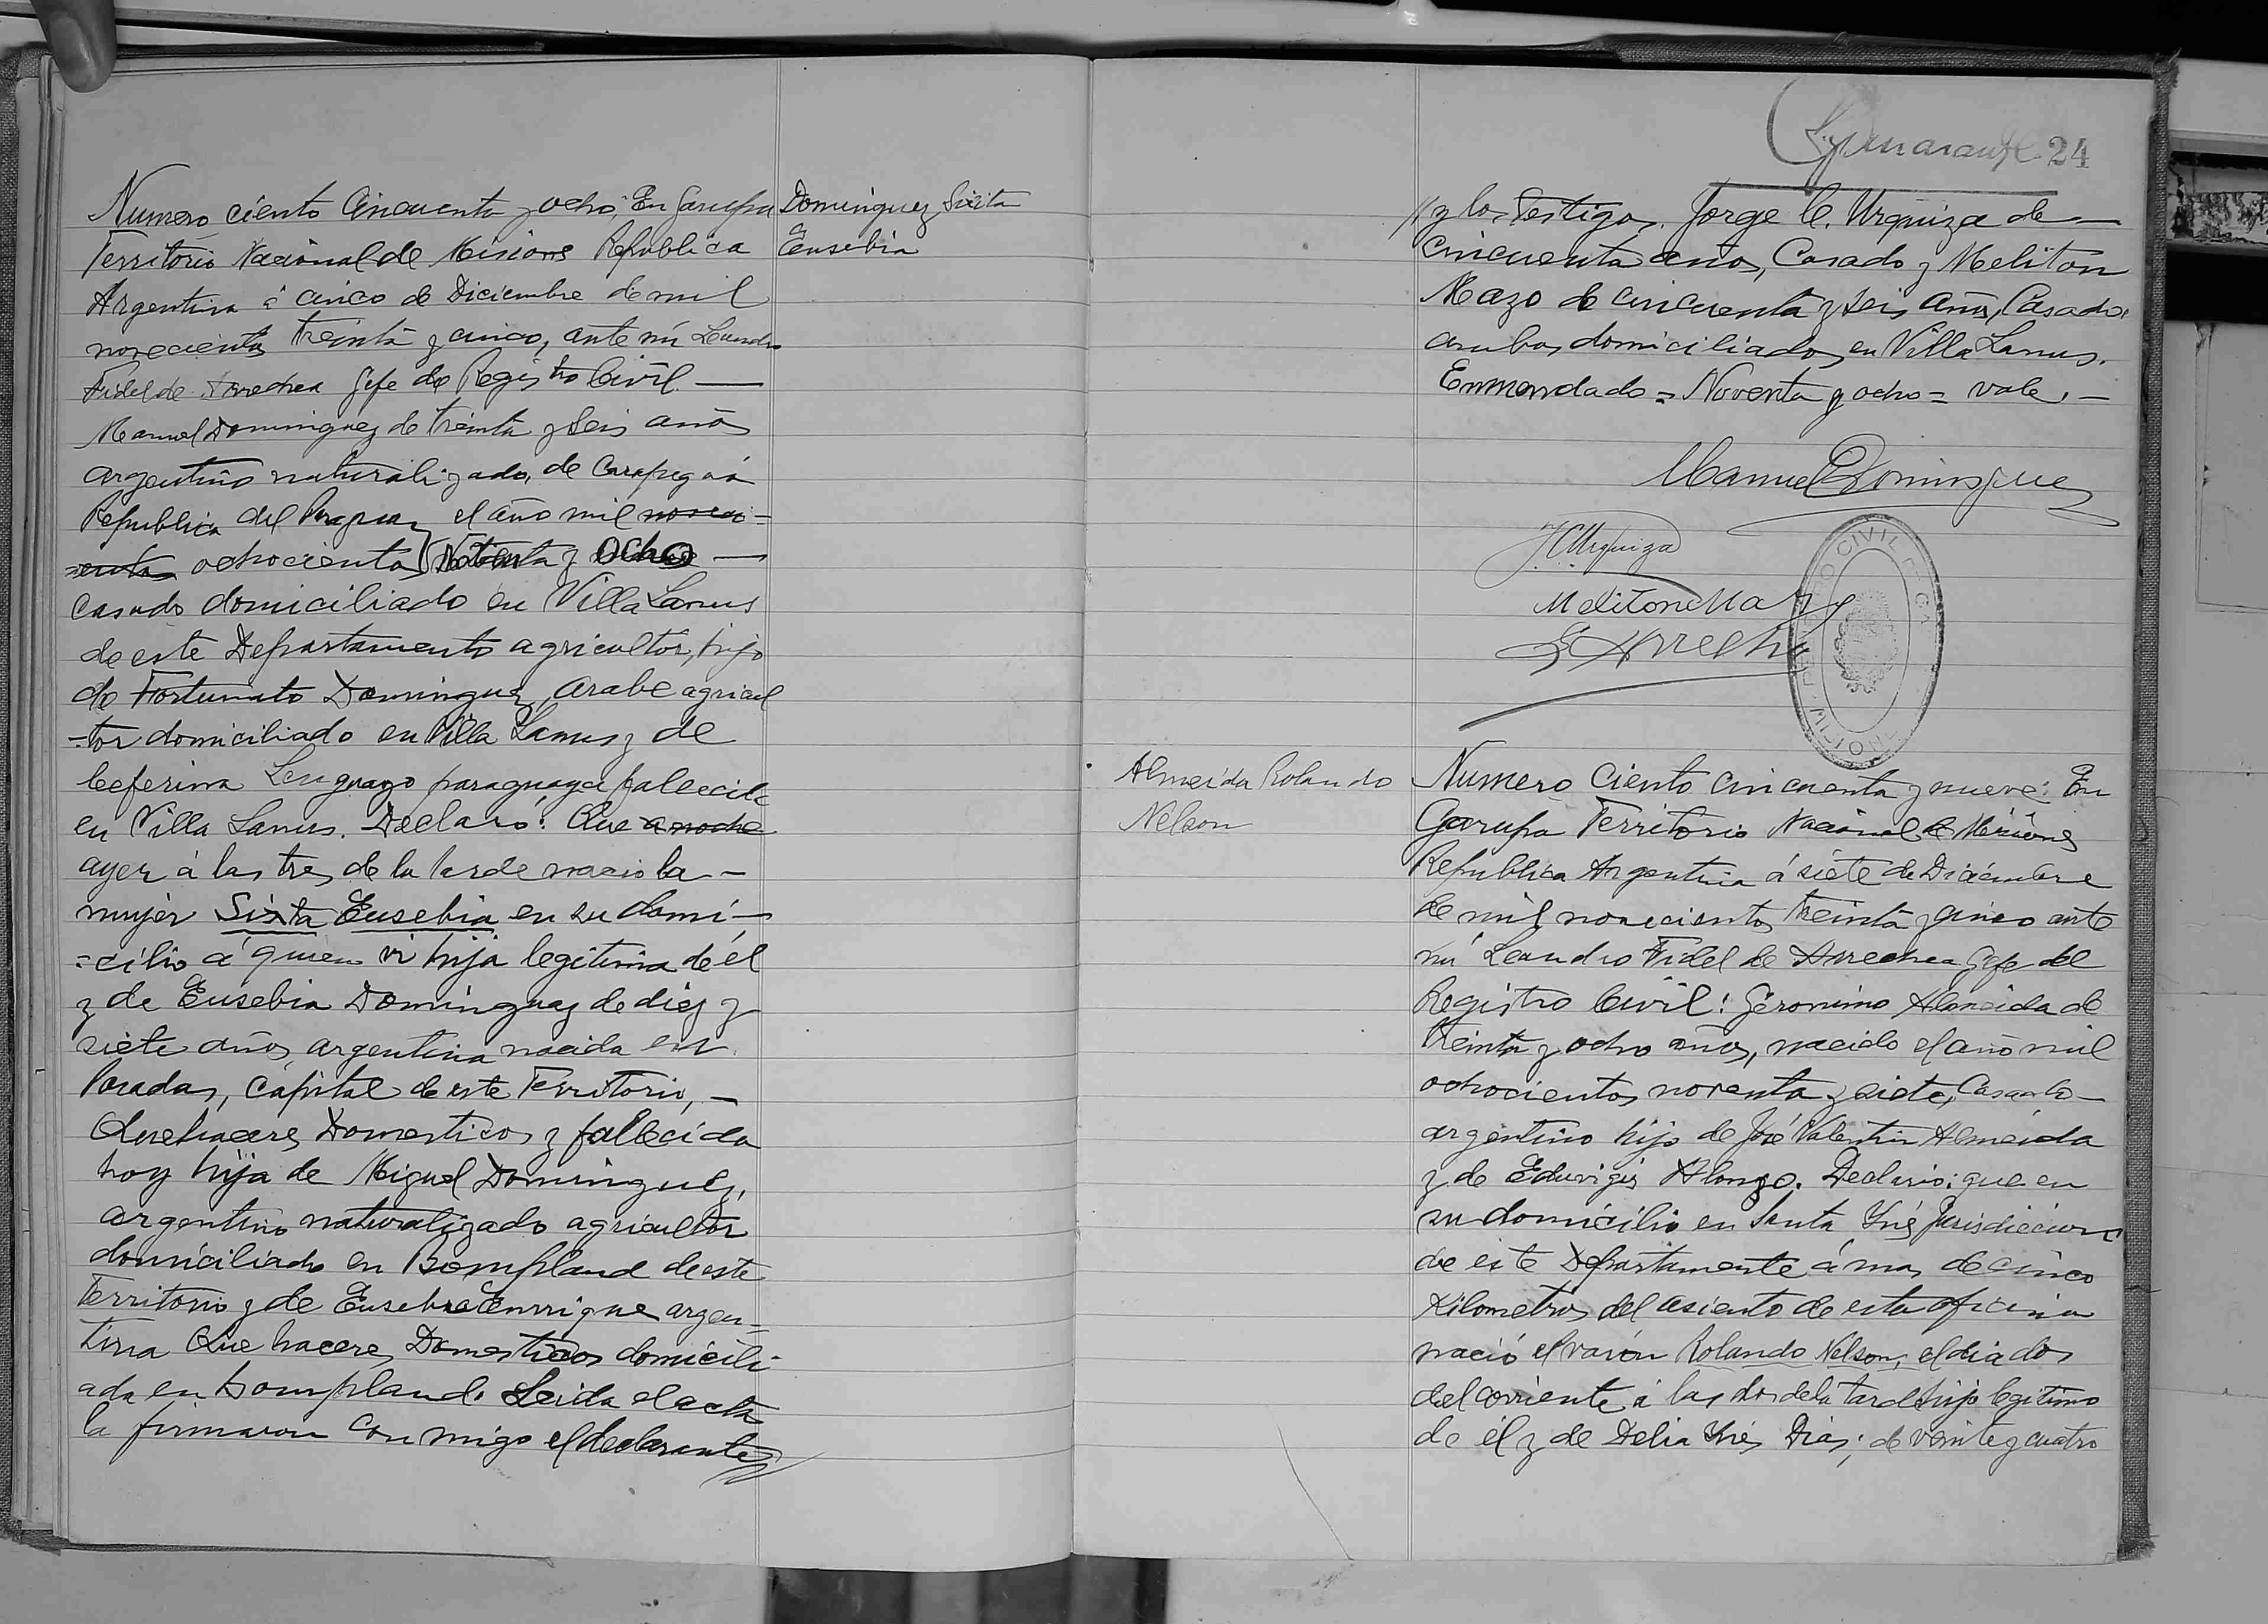 Numero ciento Cincuenta y ocho; En Garupa
Territorio Nacional de Misiones Republica
Argentina á cinco de Diciembre de mil
novecientos treinta y cinco, ante mí Leandro
Fidel de Arrechea Gefe de Registro Civil.—
Manuel Dominguez de treinta y seis años
argentino naturalizado, de Carapeguá
Republica del Paraguay el año mil noveci=
=entos ochocientos Noventa y ocho —
Casado domiciliado en Villa Lanus
de este Departamento agricultor, hijo
de Fortunato Dominguez, arabe agricul
-tor domiciliado en Villa Lanus y de
Ceferina paraguaya fallecida
en Villa Lanus. Declaró: Que anoche
ayer á las tres de la tarde nacio la —
mujer Sixta Eusebia en su domi—
=cilio á quien vi hija legitima de él
y de Eusebia Dominguez de diez y
siete años argentina nacida en
Posadas, Capital de este Territorio, —
Quehaceres Domesticos y fallecida
hoy hija de Miguel Dominguez,
argentino naturalizado agricultor
domiciliado en Bompland de este
Territorio y de Eusebia Enrrique argen=
tina Que haceres Domesticos domicili-
ada en Bompland. Leida el acta
la firmaron conmigo el declarante
Dominguez Sixta
Eusebia
24
// y los testigos. Jorge C. Urquiza de —
cincuenta años, Casado y Meliton
Mazo de cincuenta y seis años, Casado,
ambos domiciliados en Villa Lanus.
Enmendado = Noventa y ocho = vale. —
Manuel Dominguez
J C Urquiza
Meliton Mazo
L Arrechea
CIVIL
Almeida Rolando
Nelson
Numero Ciento cincuenta y nueve: En
Garupa Territorio Nacional de Misiones
Republica Argentina á siete de Diciembre
de mil novecientos treinta y cinco ante
mí Leandro Fidel de Arrechea Gefe del
Registro Civil: Geronimo Almeida de
treinta y ocho años, nacido el año mil
ochocientos noventa y siete, Casado —
argentino hijo de José Valentin Almeida
y de Eduvigis Alonzo. Declaro: que en
su domicilio en Santa Ynés Jurisdiccion
de este Departamente á mas de cinco
Kilometros del asiento de esta oficina
nació el varón Rolando Nelson, el dia dos
del corriente á las dos de la tarde hijo legitimo
de él y de Delia Ynés Dias; de veinte y cuatro